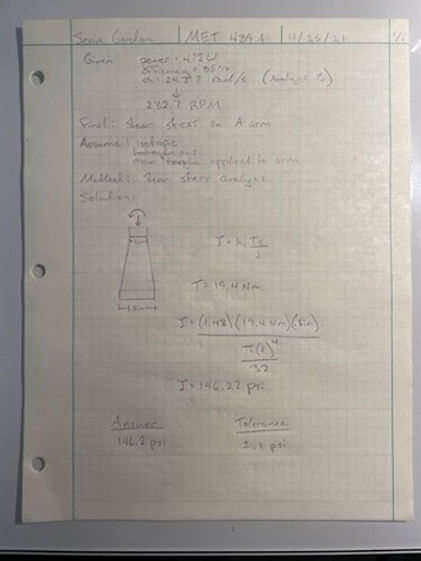 Sean Gordon | MET 489A | 11/25/21 1/1
Given power = 412W
efficiency = 85%
ω = 24.37 rad/s (Analysis B)
↓
232.7 RPM
Find: Shear stress on A arm
Assume: isotopic
homogenous
max torque applied to arm
Method: Shear stress analysis
Solution:
τ = k₁ Tc/J
T = 19.4 Nm
1.5in
τ = (1.48)(19.4 Nm)(.5in)
π(1)⁴
32
τ = 146.22 psi
Answer Tolerance
146.2 psi 1.1 psi